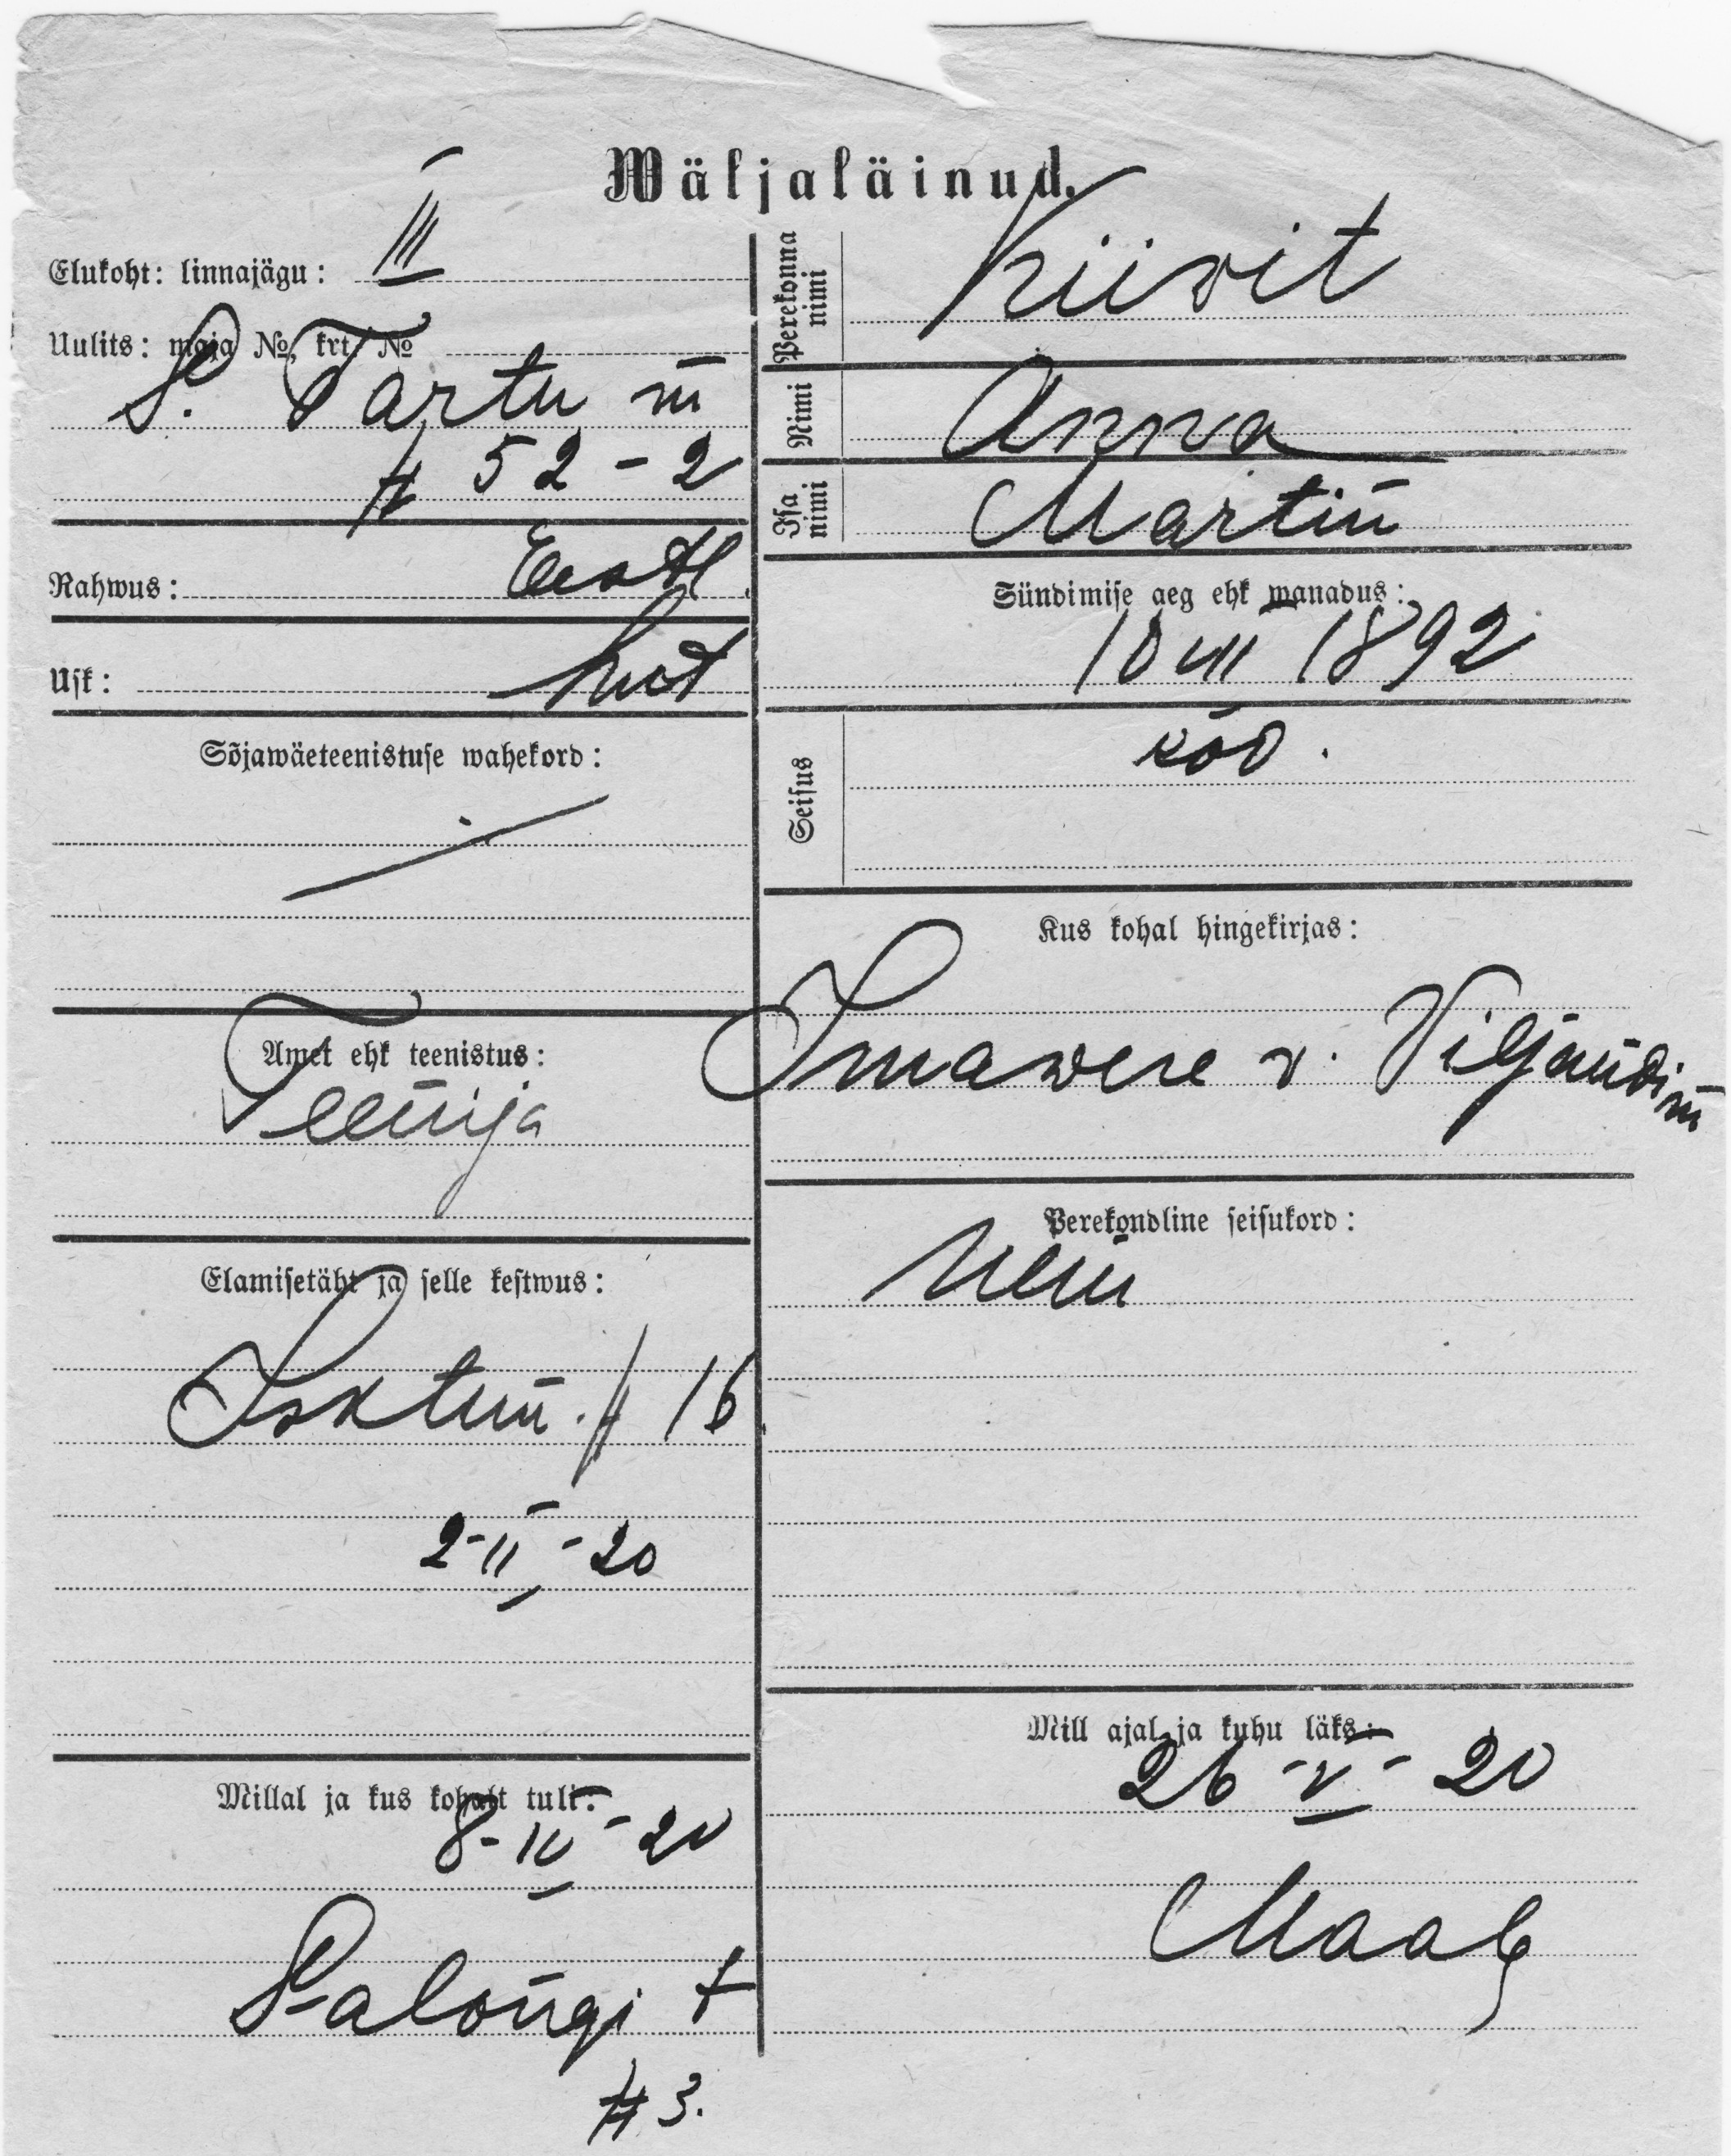 Wäljaläinud.
Elukoht: linnajägu: III
Uulits: maja №, krt. №
S. Tartu m
№ 52 - 2
Rahwus: Eestl.
Usk: lut
Sõjawäeteenistuse wahekord:
Amet ehk teenistus:
Teenija
Elamisetäht ja selle kestwus:
Isktun. № 16
2-II-20
Millal ja kus kohalt tuli:
8-IV-20
Salongi t
№ 3.
Perekonna nimi
Kiivit
Nimi
Anna
Isa nimi
Martin
Sündimise aeg ehk wanadus:
10 VII 1892
Seisus
köd.
Kus kohal hingekirjas:
Imawere v. Viljandi m
Perekondline seisukord:
Neiu
Mill ajal ja kuhu läks:
26-V-20
Maale